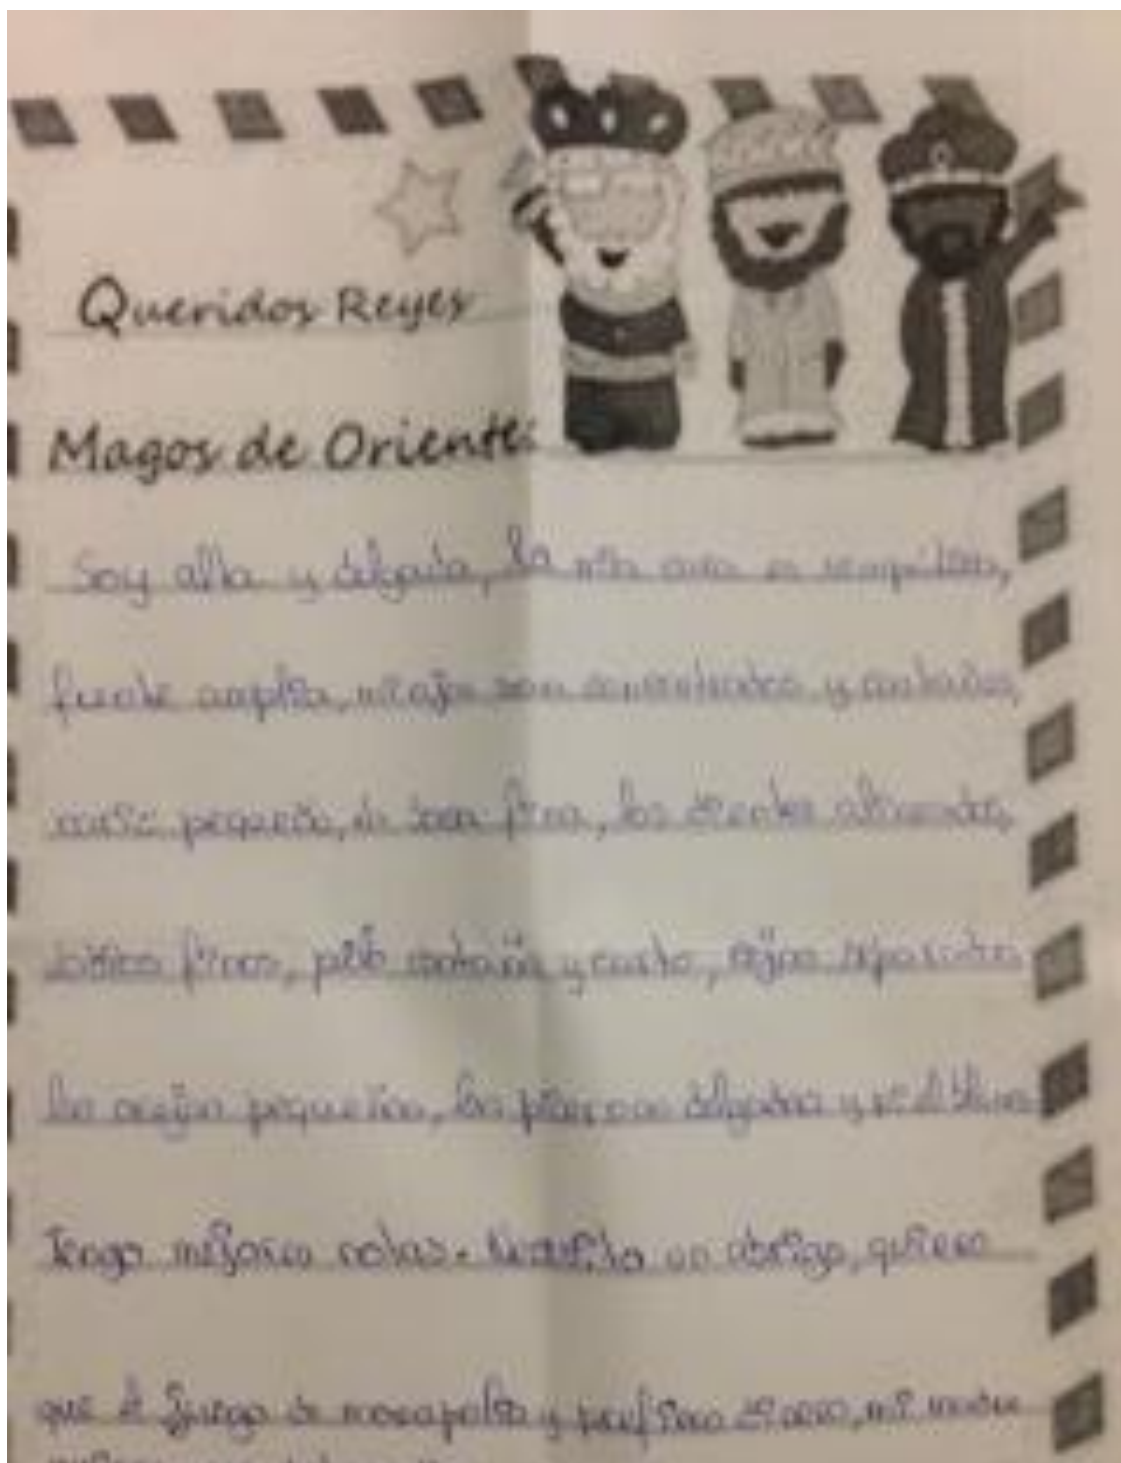 Queridos Reyes
Magos de Oriente:
Soy alta y delgada, la mía cara es
frente amplia, mi ojos son concentrados y
nariz pequeña, la boca fina, los dientes alineados,
labios finos, pelo castaño y corto, cejas separadas
las orejas pequeñas, las piernas delgadas y
tengo mejores notas. Necesito un abrigo, quiero
que el juego de monopolio y prefiero dinero, mi madre